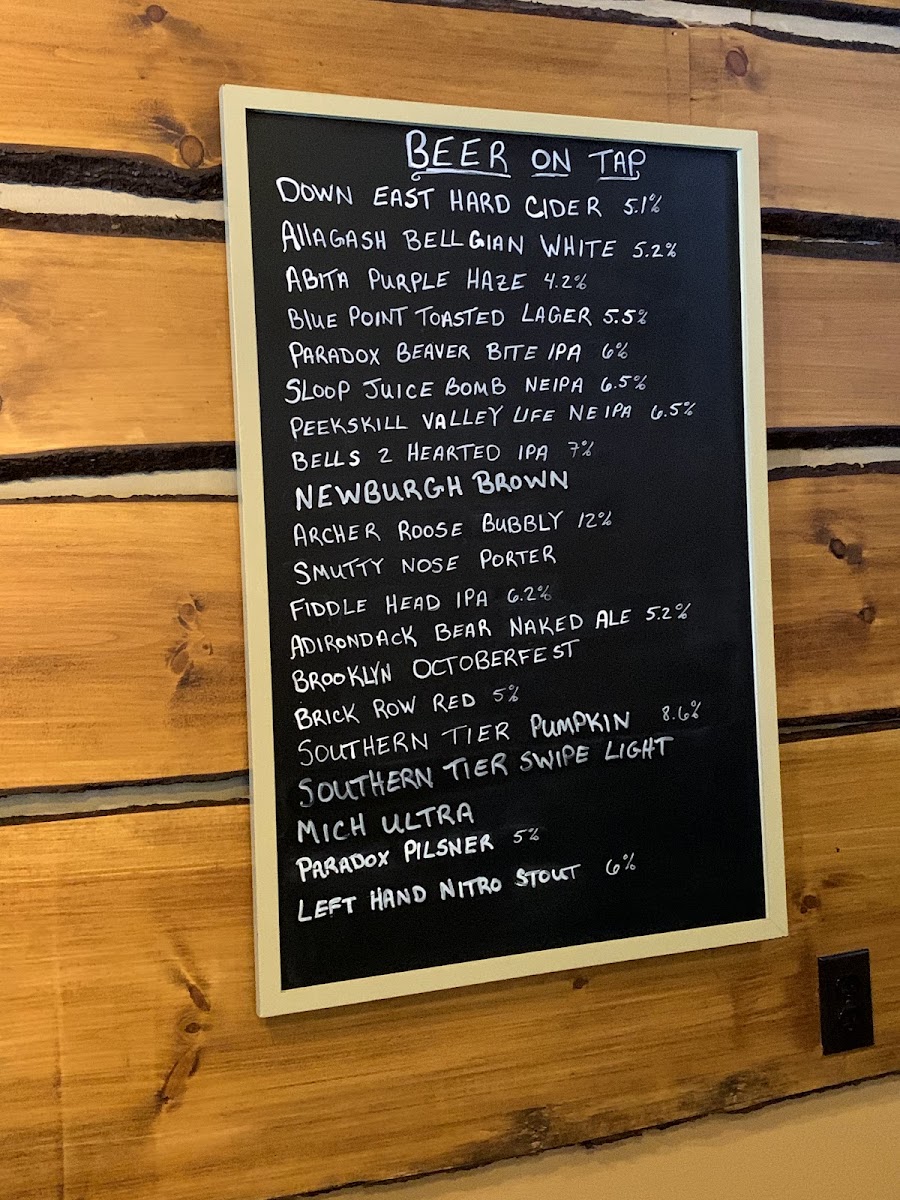 BEER ON TAP
DOWN EAST HARD CIDER 5.1%
AllAGASH BELLGIAN WHITE 5.2%
ABITA PURPLE HAZE 4.2%
BLUE POINT TOASTED LAGER 5.5%
PARADOX BEAVER BITE IPA 6%
SLOOP JUICE BOMB NEIPA 6.5%
PEEKSKILL VALLEY LIFE NE IPA 6.5%
BELLS 2 HEARTED IPA 7%
NEWBURGH BROWN
ARCHER ROOSE BUBBLY 12%
SMUTTY NOSE PORTER
FIDDLE HEAD IPA 6.2%
ADIRONDACK BEAR NAKED ALE 5.2%
BROOKLYN OCTOBERFEST
BRICK ROW RED 5%
SOUTHERN TIER PUMPKIN 8.6%
SOUTHERN TIER SWIPE LIGHT
MICH ULTRA
PARADOX PILSNER 5%
LEFT HAND NITRO STOUT 6%